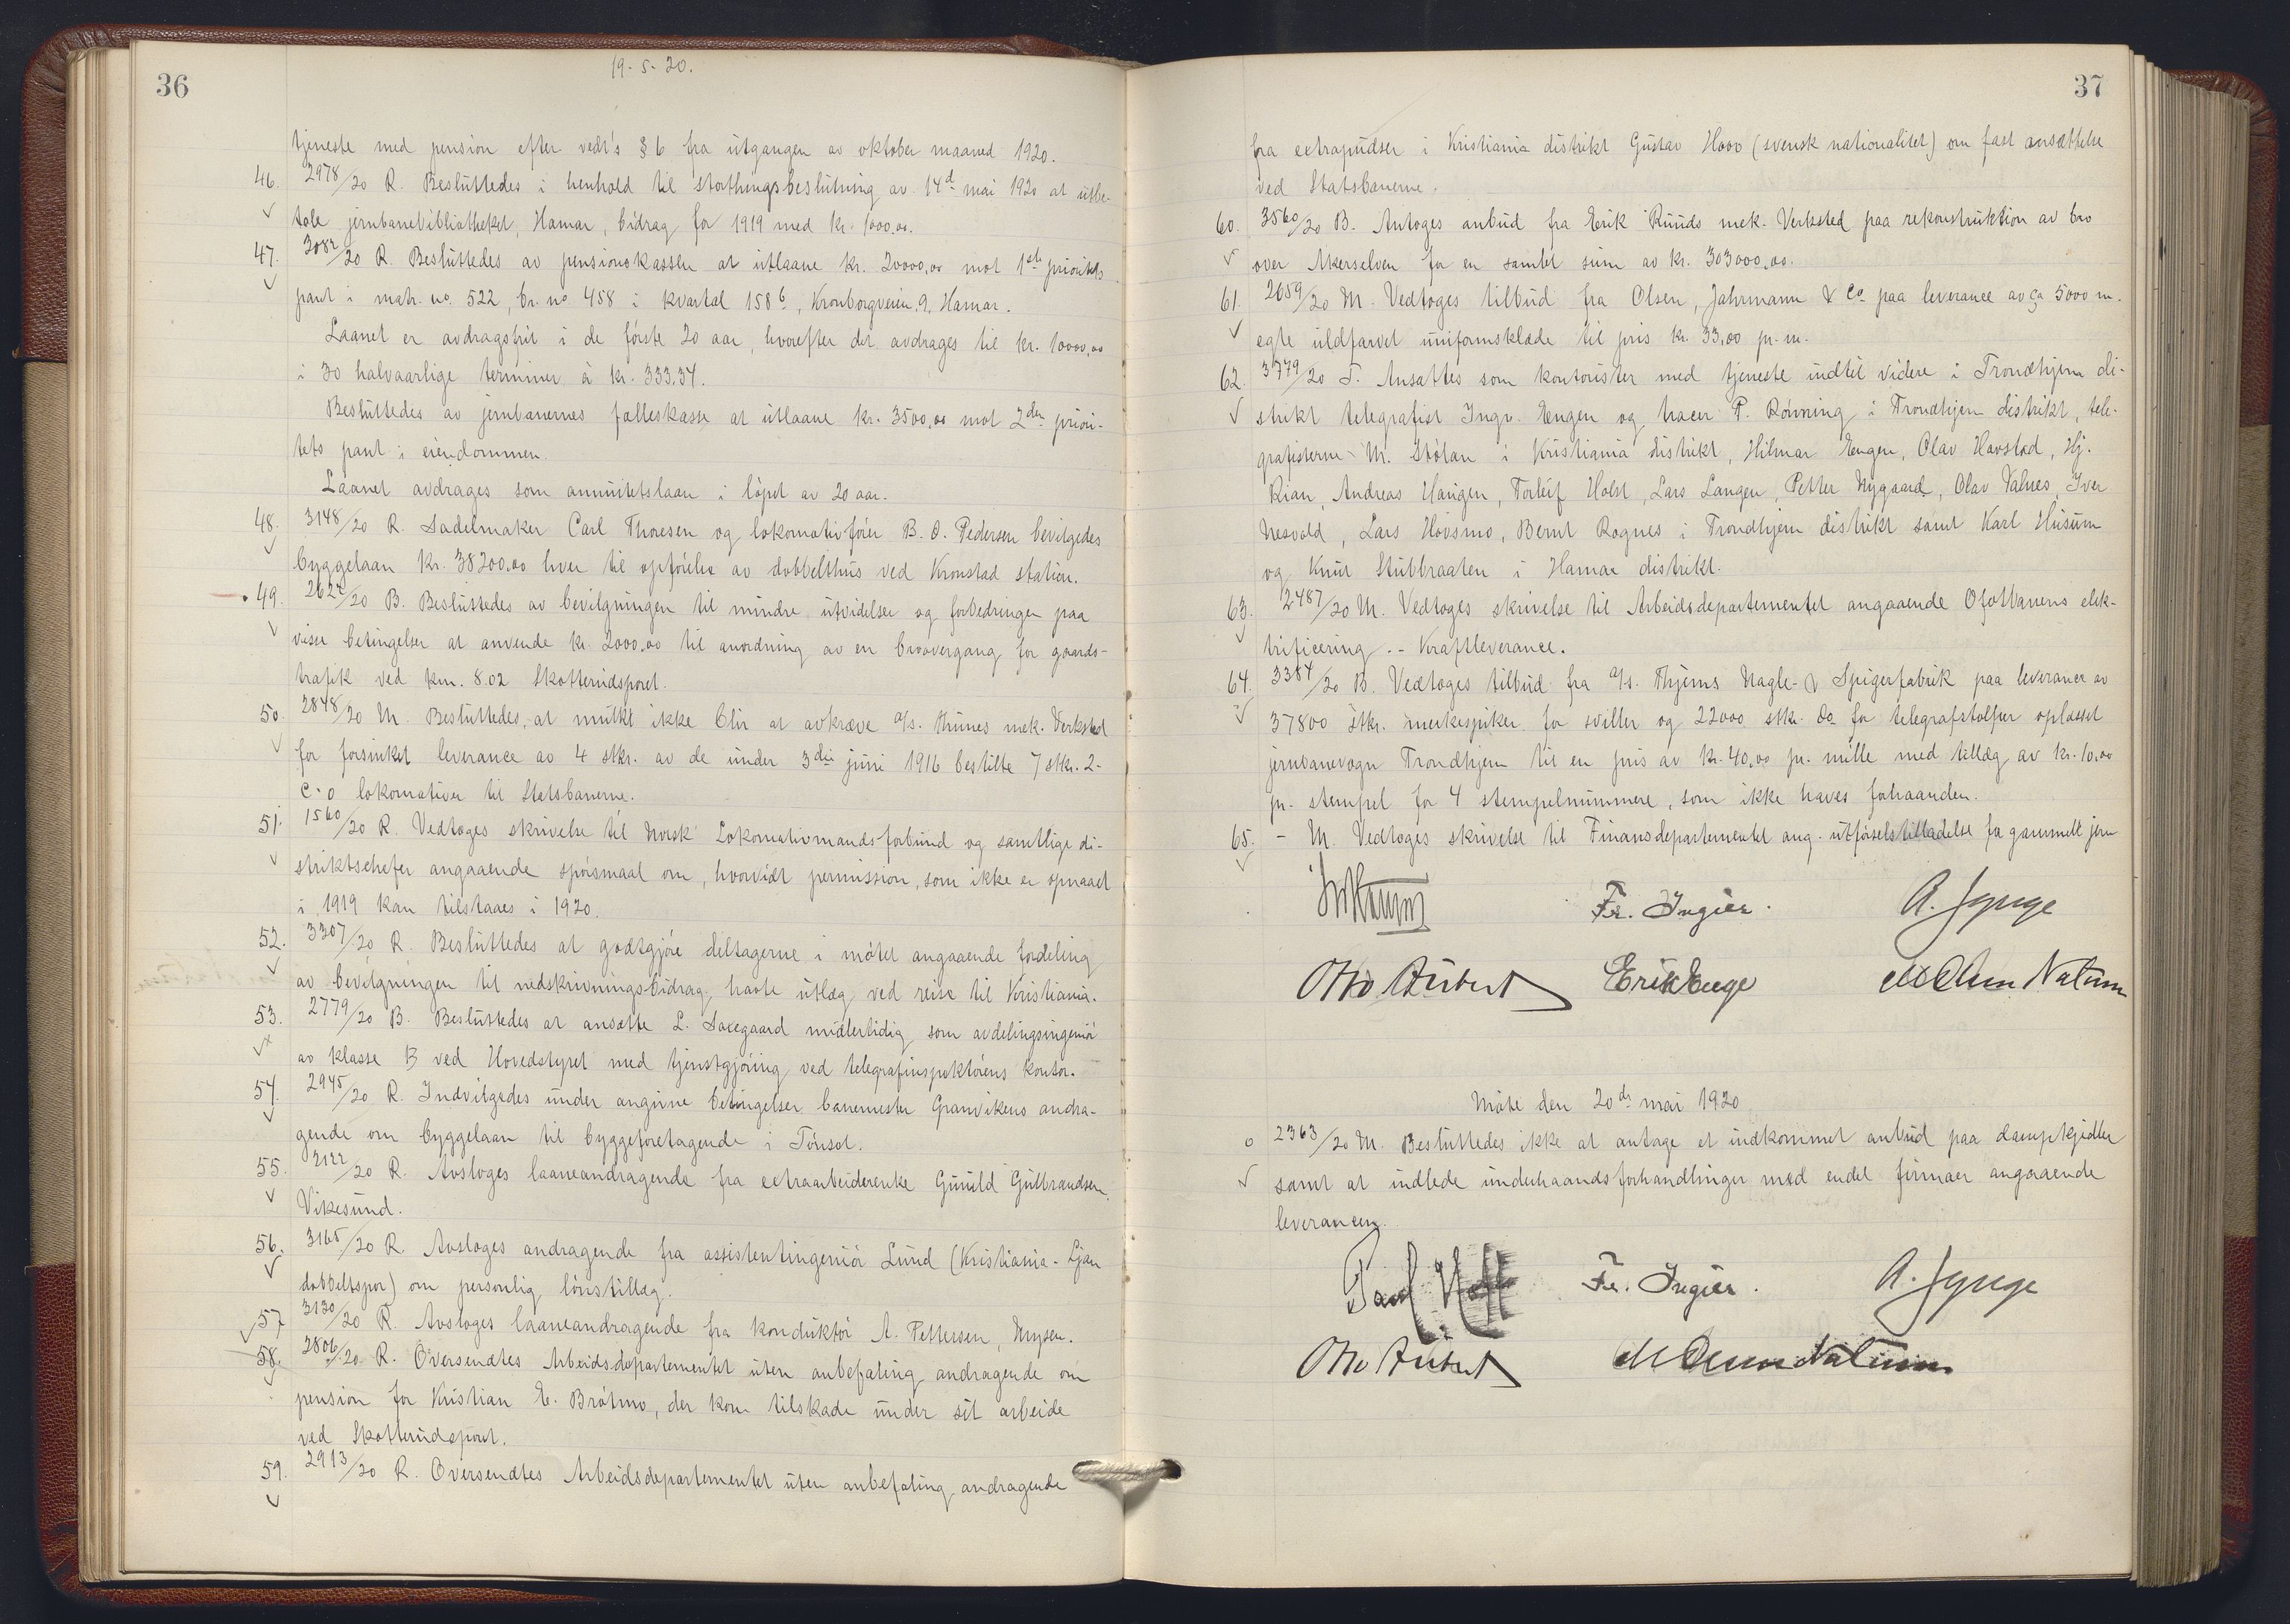 36
19-5-20.
tjeneste med pension efter vedt's § 6 fra utgangen av oktober maaned 1920.
46. 2978/20 R. Besluttedes i henhold til storthingsbeslutning av 14d mai 1920 at utbe-
tale jernbanebibliotheket, Hamar, bidrag for 1919 med kr. 1000.00.
47. 3082/20 R. Besluttedes av pensionskassen at utlaane kr. 20000,00 mot 1ste prioritets
pant i matr. no. 522, br. no 458 i kvartal 158 b, Kronborgveien 9, Hamar.
Laanet er avdragsfrit i de første 20 aar, hvorefter det avdrages til kr. 10000,00
i 30 halvaarlige terminer à kr. 333.34.
Besluttedes av jernbanernes fælleskasse at utlaane kr. 3500,00 mot 2den priori-
tets pant i eiendommen.
Laanet avdrages som annuitetslaan i løpet av 20 aar.
48. 3148/20 R. Sadelmaker Carl Thoresen og lokomotivfører B. O. Pedersen bevilgedes
byggelaan kr. 38200.00 hver til opførelse av dobbelthus ved Kronstad station.
49. 2622/20 B. Besluttedes av bevilgningen til mindre utvidelser og forbedringer paa
visse betingelser at anvende kr. 2000.00 til anordning av en broovergang for gaards-
trafik ved km. 8.02 Skotterudsporet.
50. 2848/20 M. Besluttedes, at mulkt ikke blir at avkræve a/s. Thunes mek. Verksted
for forsinket leverance av 4 stkr. av de under 3die juni 1916 bestilte 7 stkr. 2-
C-0 lokomotiver til Statsbanerne.
51. 1560/20 R. Vedtoges skrivelse til Norsk Lokomotivmandsforbund og samtlige di-
striktschefer angaaende spørsmaal om, hvorvidt permission, som ikke er opnaaet
i 1919 kan tilstaaes i 1920.
52. 3307/20 R. Besluttedes at godtgjøre deltagerne i møtet angaaende fordeling
av bevilgningen til nedskrivningsbidrag, havte utlæg ved reise til Kristiania.
53. 2779/20 B. Besluttedes at ansætte L. Saxegaard midlertidig som avdelingsingeniør
av klasse B ved Hovedstyret med tjenstgjøring ved telegrafinspektørens kontor.
54. 2945/20 R. Indvilgedes under angivne betingelser banemester Granvikens andra-
gende om byggelaan til byggeforetagende i Tønset.
55. 2122/20 R. Avsloges laaneandragende fra extraarbeiderenke Gunild Gulbrandsen,
Vikesund.
56. 3165/20 R. Avsloges andragende fra assistentingeniør Lund (Kristiania-Ljan
dobbeltspor) om personlig lønstillæg.
57. 3130/20 R. Avsloges laaneandragende fra konduktør A. Pettersen, Mysen.
58. 2806/20 R. Oversendtes Arbeidsdepartementet uten anbefaling andragende om
pension for Kristian E. Bråtmo, der kom tilskade under sit arbeide
ved Skotterudsporet.
59. 2913/20 R. Oversendtes Arbeidsdepartementet uten anbefaling andragende
37
fra extrapudser i Kristiania distrikt Gustav Hoov (svensk nationalitet) om fast ansættelse
ved Statsbanerne.
60. 3560/20 B. Antoges anbud fra Erik Ruuds mek. Verksted paa rekonstruktion av bro
over Akerselven for en samlet sum av kr. 303000.00.
61. 2659/20 M. Vedtoges tilbud fra Olsen, Jahrmann & Co paa leverance av ca 5000 m.
egte uldfarvet uniformsklæde til pris kr. 33,00 pr. m.
62. 3779/20 T. Ansattes som kontorister med tjeneste indtil videre i Trondhjem di-
strikt telegrafist Ingv. Engen og tracer P. Rønning i Trondhjem distrikt, tele-
grafisterne M. Stølan i Kristiania distrikt, Hilmar Engen, Olav Havstad, Hj.
Rian, Andreas Haugen, Torleif Holst, Lars Langen, Petter Nygaard, Olav Valnes, Iver
Nesvold, Lars Hovsmo, Bernt Rognes i Trondhjem distrikt samt Karl Husum
og Knut Stubbraaten i Hamar distrikt.
63. 2487/20 M. Vedtoges skrivelse til Arbeidsdepartementet angaaende Ofotbanens elek-
trificering. - Kraftleverance.
64. 3384/20 B. Vedtoges tilbud fra a/s. Thjems Nagle- & Spigerfabrik paa leverance av
37800 stkr. merkespiker for sviller og 22000 stk. do for telegrafstolper oplasset
jernbanevogn Trondhjem til en pris av kr. 40,00 pr. mille med tillæg av kr. 10,00
pr. stempel for 4 stempelnummere, som ikke haves forhaanden.
65. - M. Vedtoges skrivelse til Finansdepartementet ang. utførselstilladelse for gammelt jern
Fr. Ingier. A. Jynge
Otto Aubert Erik Enge Natum
Møte den 20de mai 1920
2363/20 M. Besluttedes ikke at antage et indkommet anbud paa dampkjedler
samt at indlede underhaandsforhandlinger med endel firmaer angaaende
leverancen.
Paul Hoff Fr. Ingier. A. Jynge
Otto Aubert Natum